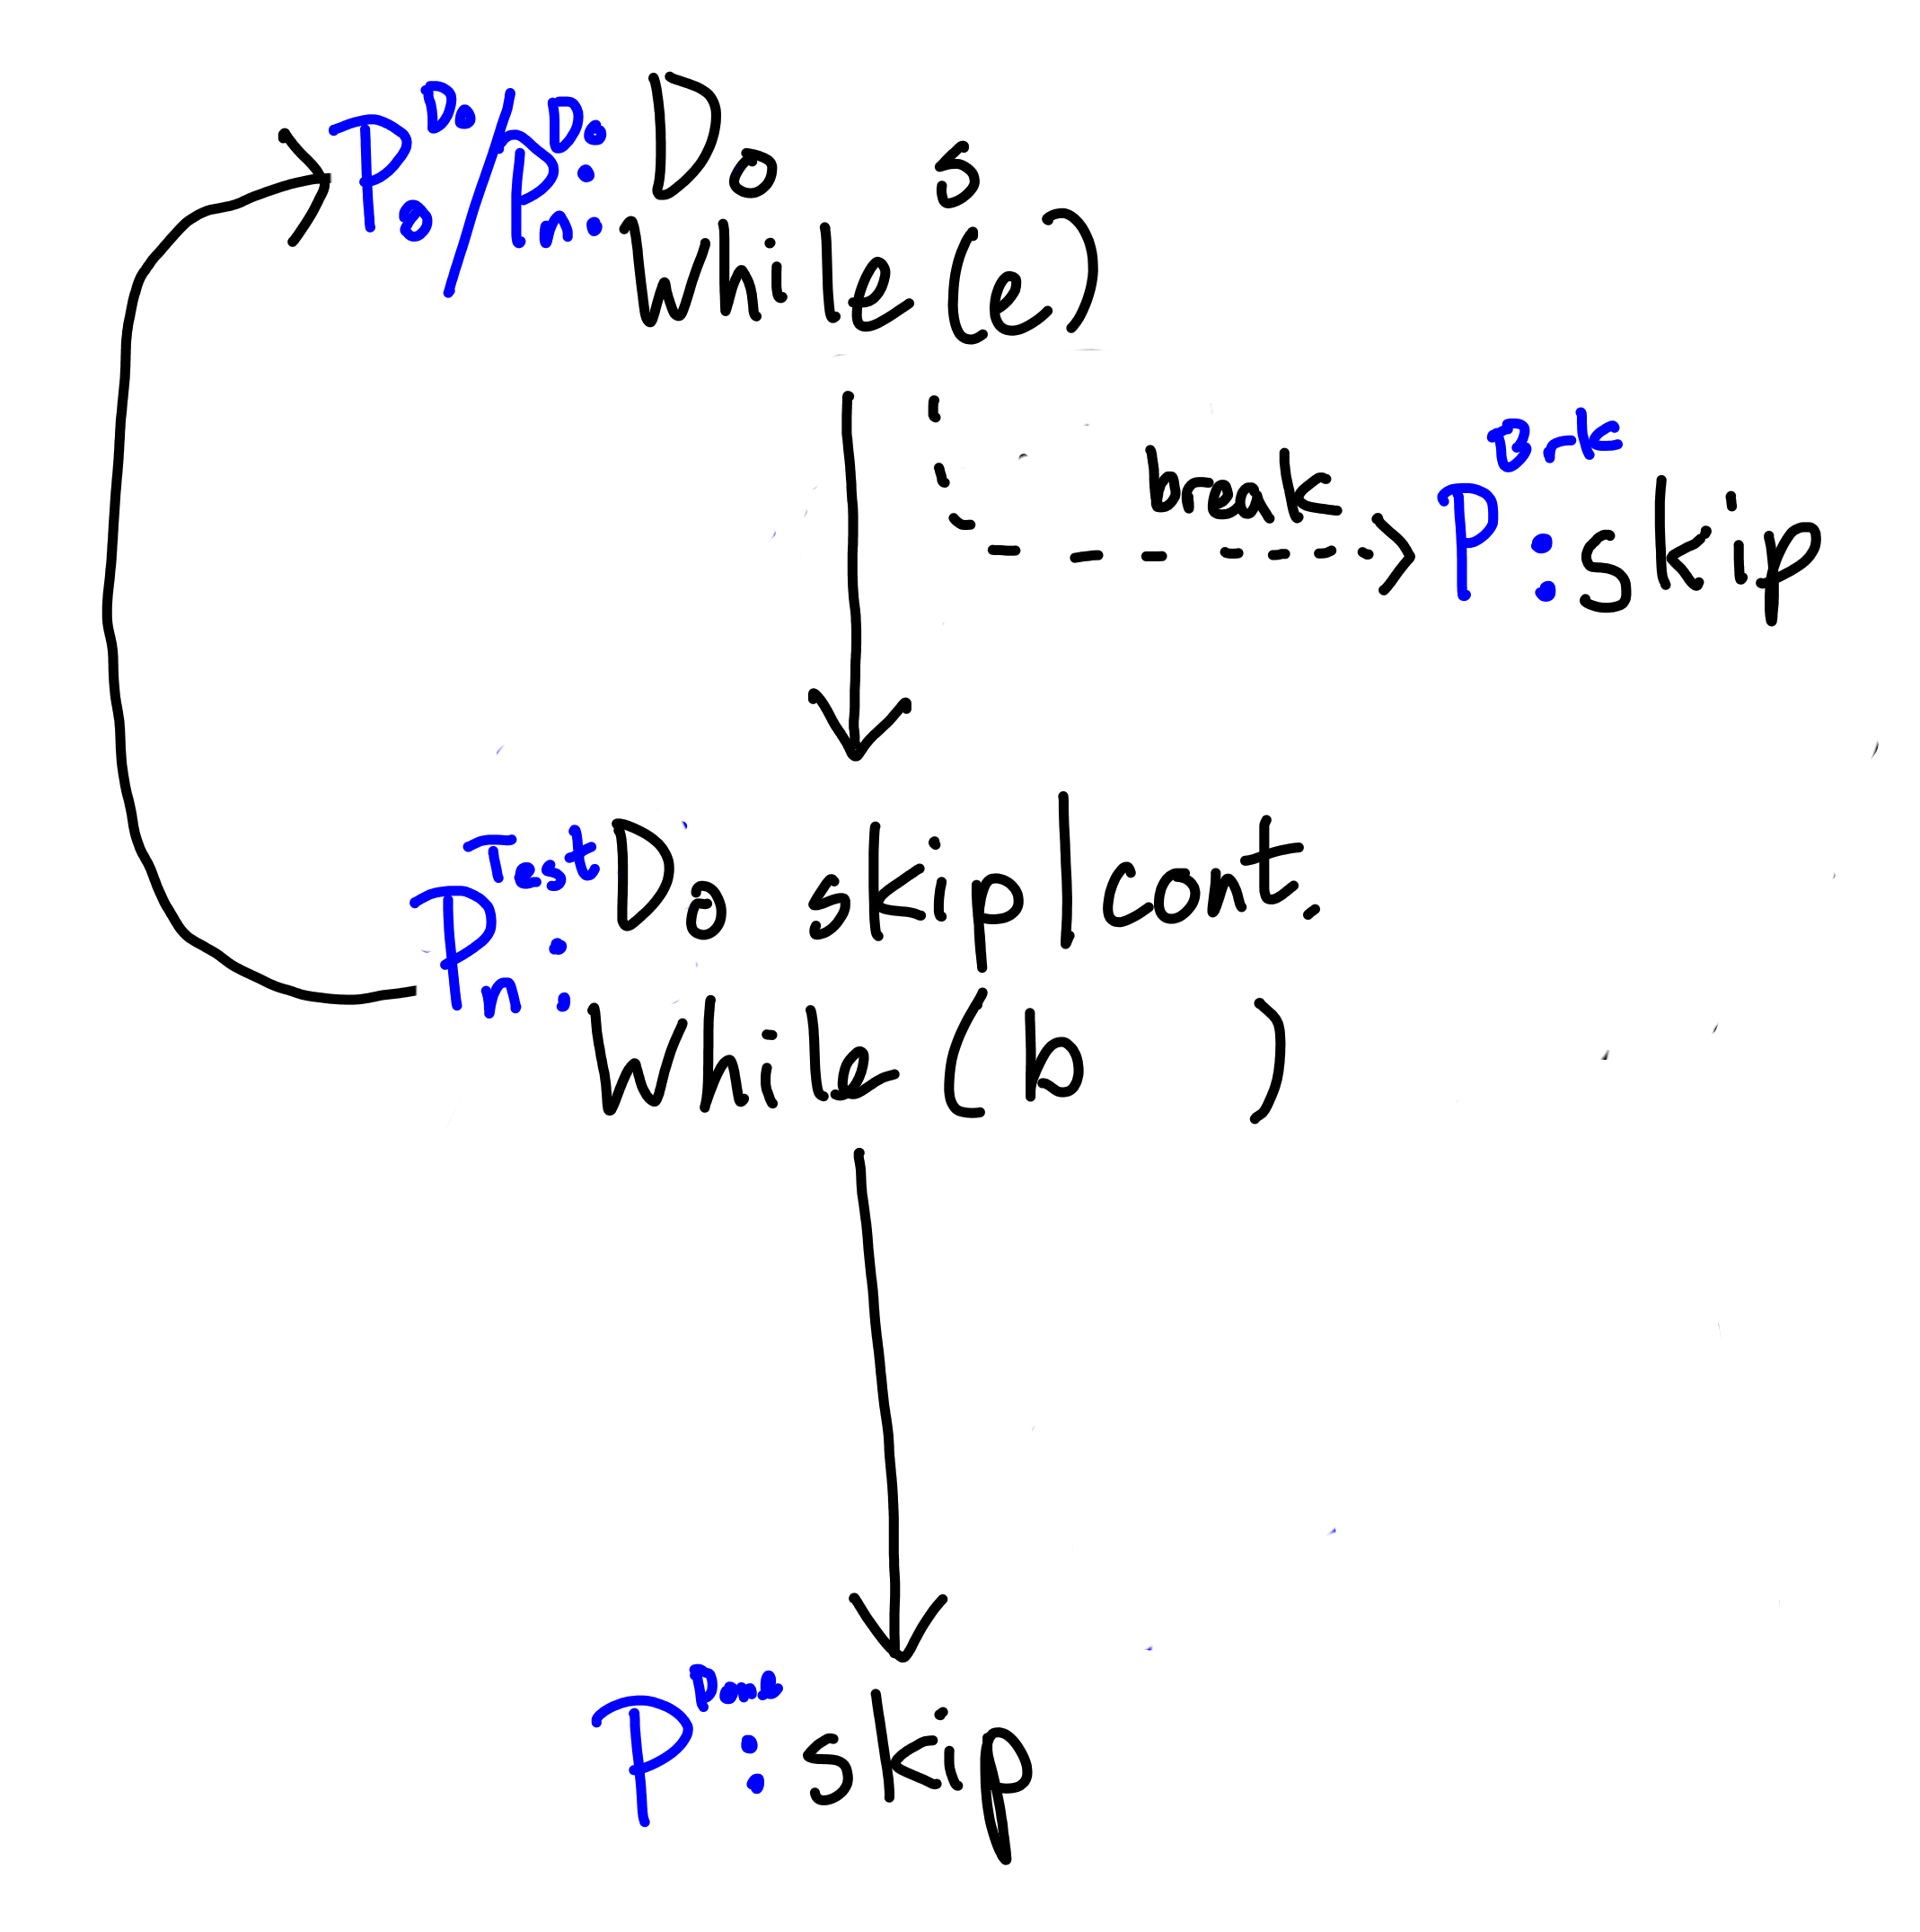 P₀ᴰᵒ/Pₙᴰᵒ: Do s
While (e)
break
Pᴮʳᵏ: skip
Pₙᵀᵉˢᵗ: Do skip|cont.
While (b )
Pᴰᵒⁿᵉ: skip